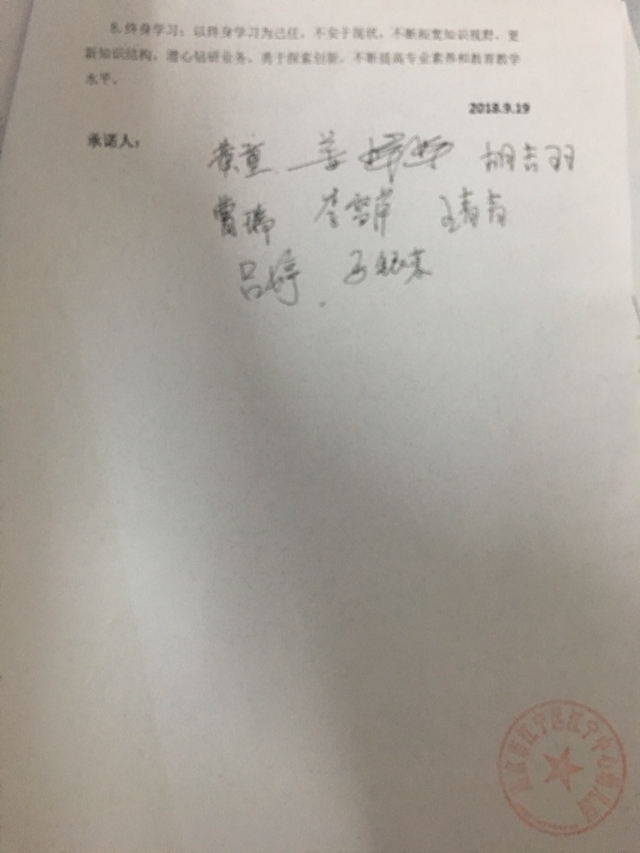 8. 终身学习：以终身学习为己任，不安于现状，不断拓宽知识视野，更
新知识结构，潜心钻研业务，勇于探索创新，不断提高专业素养和教育教学
水平。
2018.9.19
承诺人：
胡吉羽
曹瑞 李雪萍 王青青
吕婷